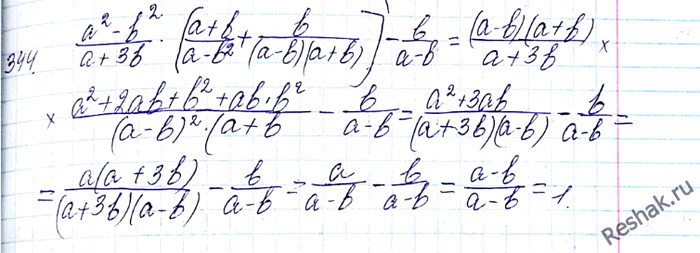 344. (a² - b²)/(a + 3b) · [(a+b)/(a-b² + b/((a-b)(a+b)] - b/(a-b) = ((a-b)(a+b))/(a+3b) ×
× (a²+2ab+b²+ab·b²)/((a-b)²·(a+b) - b/(a-b) = (a²+3ab)/((a+3b)(a-b)) - b/(a-b) =
= (a(a+3b))/((a+3b)(a-b)) - b/(a-b) = a/(a-b) - b/(a-b) = (a-b)/(a-b) = 1.
Reshak.ru